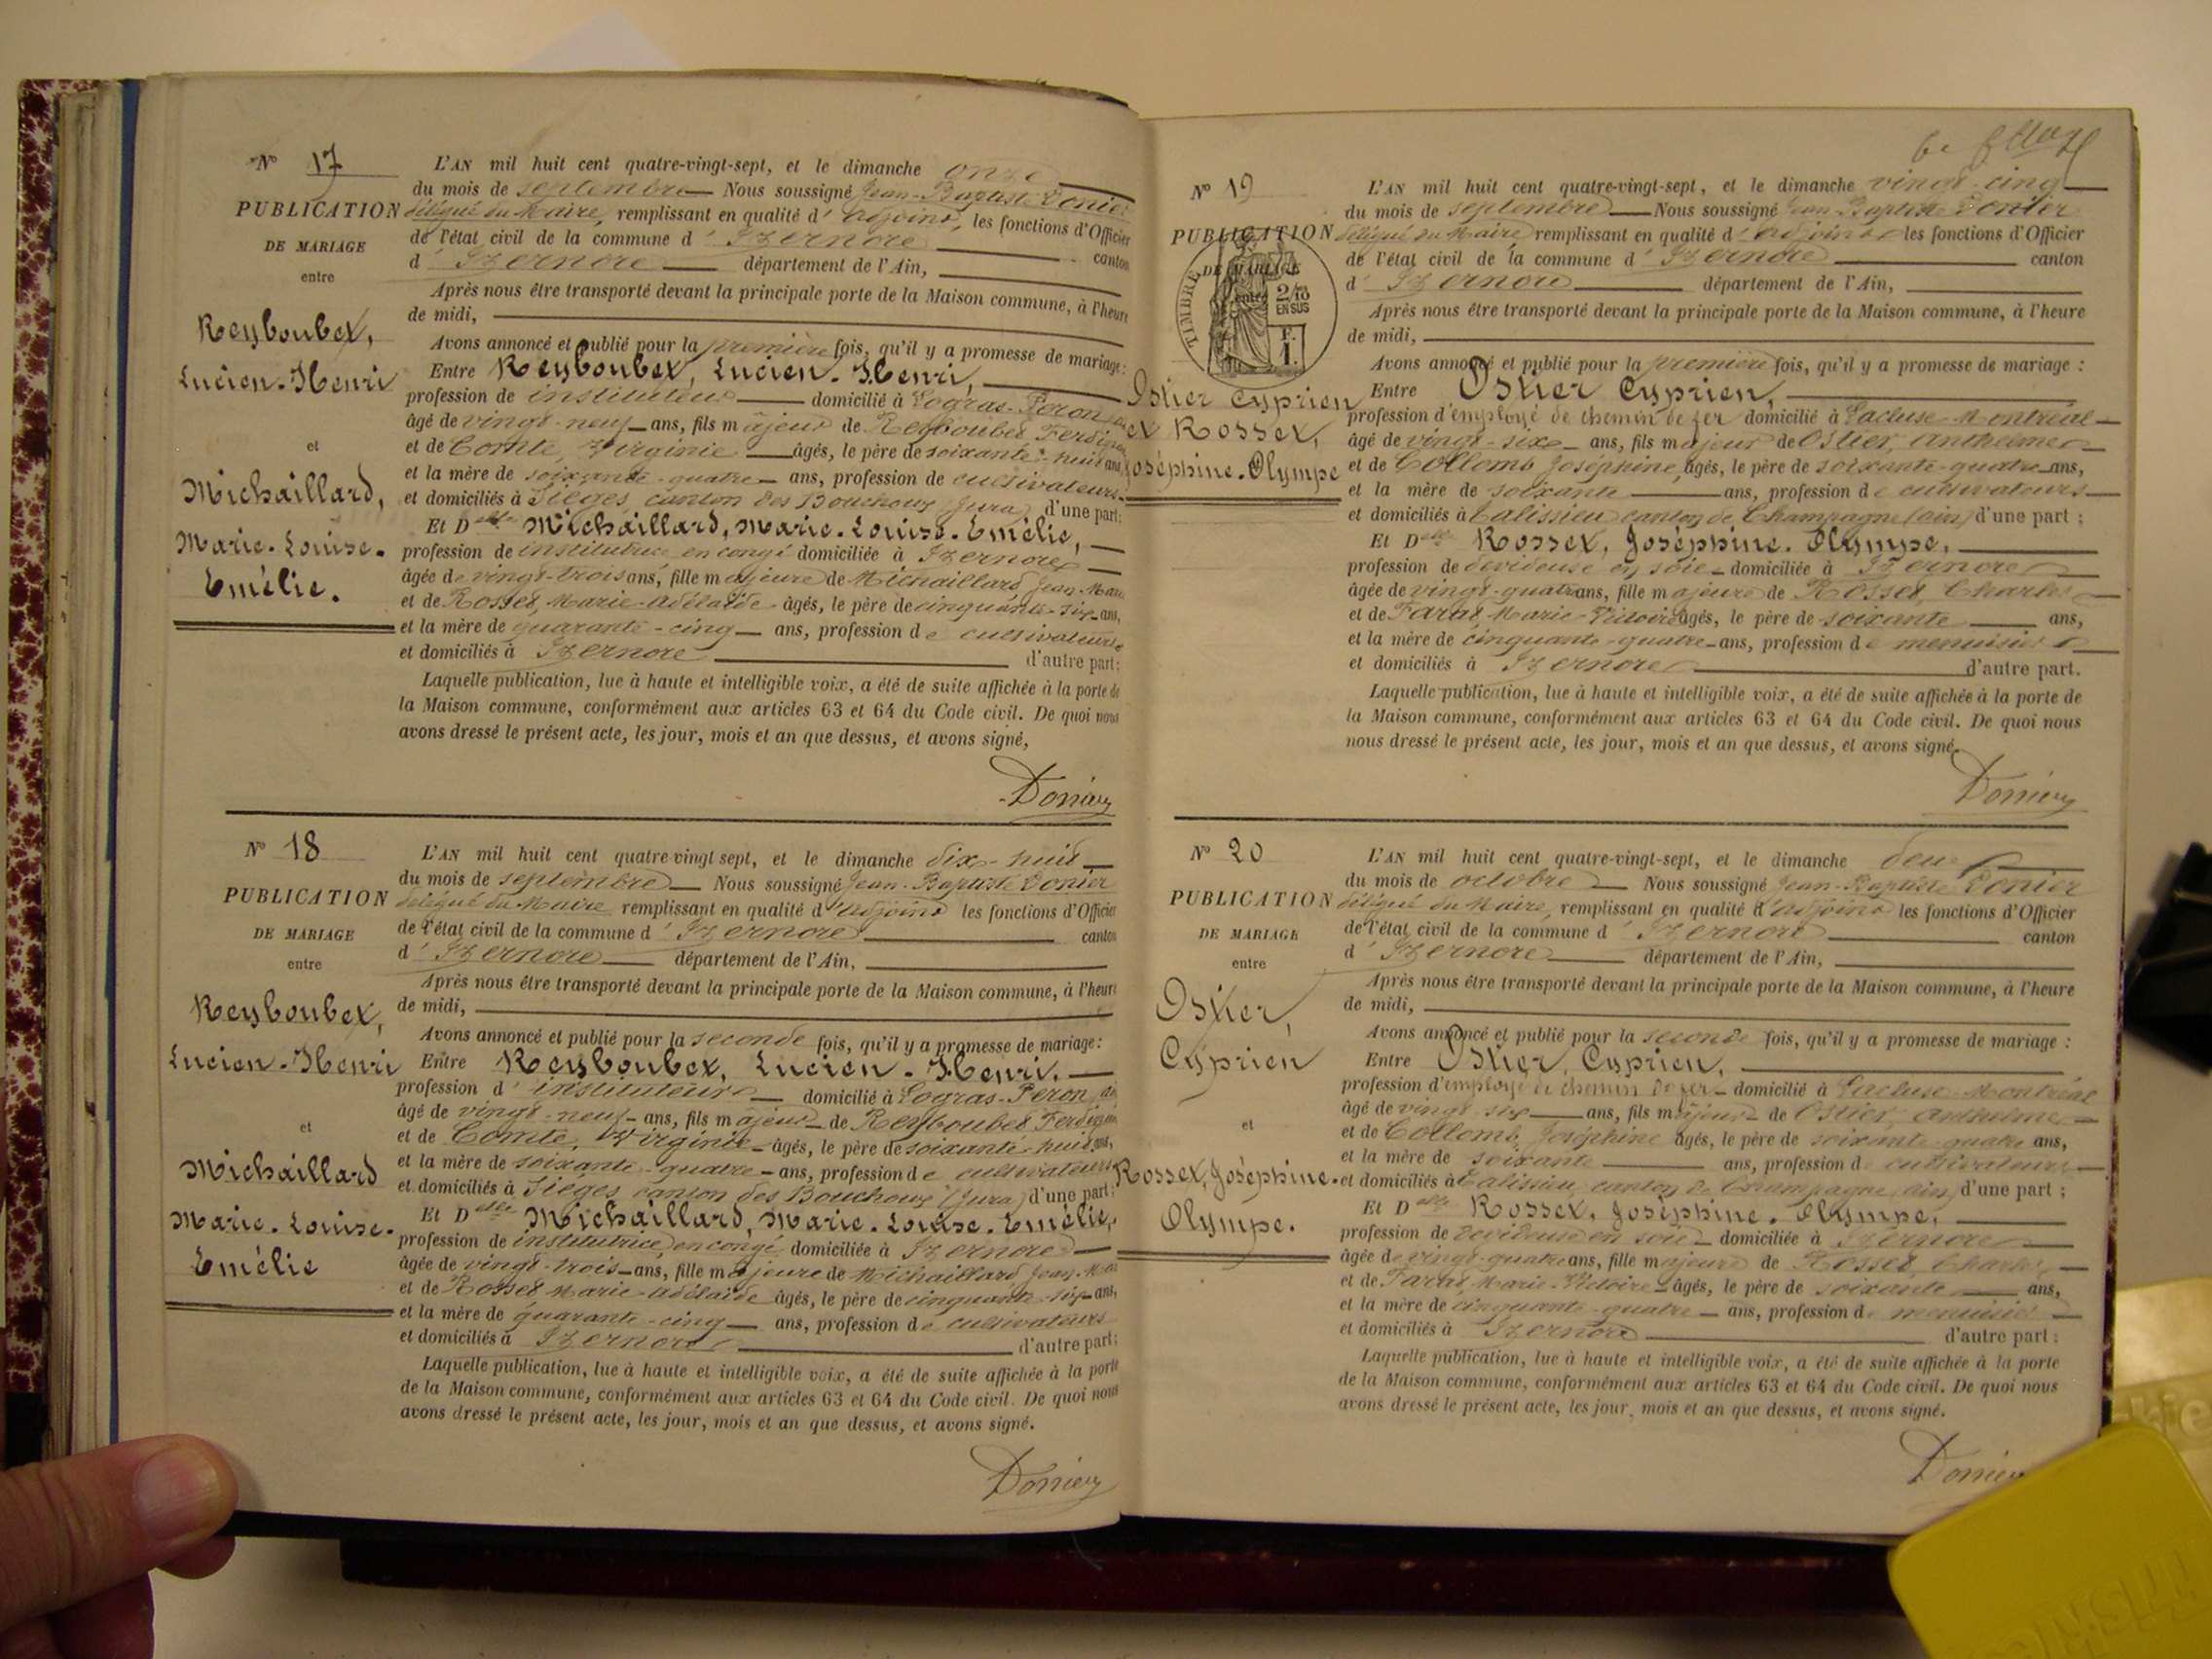 N° 17
PUBLICATION
DE MARIAGE
entre
Reyboubet,
Lucien-Henri
et
Michaillard,
Marie-Louise-
Emélie.
L'AN mil huit cent quatre-vingt-sept, et le dimanche onze
du mois de septembre Nous soussigné Jean-Baptiste Donier
délégué du Maire, remplissant en qualité d'adjoint, les fonctions d'Officier
de l'état civil de la commune d'Izernore canton
d'Izernore département de l'Ain,
Après nous être transporté devant la principale porte de la Maison commune, à l'heure
de midi,
Avons annoncé et publié pour la première fois, qu'il y a promesse de mariage:
Entre Reyboubet, Lucien-Henri,
profession de instituteur domicilié à Logras-Peron
âgé de vingt-neuf ans, fils majeur de Reyboubet Ferdinand
et de Comte, Virginie âgés, le père de soixante-huit ans,
et la mère de soixante-quatre ans, profession de cultivateurs
et domiciliés à Sièges canton des Bouchoux (Jura) d'une part;
Et Delle Michaillard, Marie-Louise-Emélie,
profession de institutrice en congé domiciliée à Izernore
âgée de vingt-trois ans, fille majeure de Michaillard Jean-Marie
et de Rosset Marie-Adélaïde âgés, le père de cinquante-six ans,
et la mère de quarante-cinq ans, profession de cultivateurs
et domiciliés à Izernore d'autre part:
Laquelle publication, lue à haute et intelligible voix, a été de suite affichée à la porte de
la Maison commune, conformément aux articles 63 et 64 du Code civil. De quoi nous
avons dressé le présent acte, les jour, mois et an que dessus, et avons signé,
Donier
N° 18
PUBLICATION
DE MARIAGE
entre
Reyboubet,
Lucien-Henri
et
Michaillard
Marie-Louise-
Emélie
L'AN mil huit cent quatre vingt sept, et le dimanche dix-huit
du mois de septembre Nous soussigné Jean-Baptiste Donier
délégué du Maire remplissant en qualité d'adjoint les fonctions d'Officier
de l'état civil de la commune d'Izernore canton
d'Izernore département de l'Ain,
Après nous être transporté devant la principale porte de la Maison commune, à l'heure
de midi,
Avons annoncé et publié pour la seconde fois, qu'il y a promesse de mariage:
Entre Reyboubet, Lucien-Henri,
profession d'instituteur domicilié à Logras-Peron
âgé de vingt-neuf ans, fils majeur de Reyboubet Ferdinand
et de Comte, Virginie âgés, le père de soixante-huit ans,
et la mère de soixante-quatre ans, profession de cultivateurs
et domiciliés à Sièges canton des Bouchoux (Jura) d'une part;
Et Delle Michaillard, Marie-Louise-Emélie,
profession de institutrice en congé domiciliée à Izernore
âgée de vingt-trois ans, fille majeure de Michaillard Jean-Marie
et de Rosset Marie-Adélaïde âgés, le père de cinquante-six ans,
et la mère de quarante-cinq ans, profession de cultivateurs
et domiciliés à Izernore d'autre part:
Laquelle publication, lue à haute et intelligible voix, a été de suite affichée à la porte
de la Maison commune, conformément aux articles 63 et 64 du Code civil. De quoi nous
avons dressé le présent acte, les jour, mois et an que dessus, et avons signé.
Donier
N° 19
PUBLICATION
DE MARIAGE
entre
TIMBRE
2/10
EN SUS
F.
1.
Ostier Cyprien
et Rosset,
Joséphine-Olympe
L'AN mil huit cent quatre-vingt-sept, et le dimanche vingt-cinq
du mois de septembre Nous soussigné Jean-Baptiste Donier
délégué du Maire remplissant en qualité d'adjoint les fonctions d'Officier
de l'état civil de la commune d'Izernore canton
d'Izernore département de l'Ain,
Après nous être transporté devant la principale porte de la Maison commune, à l'heure
de midi,
Avons annoncé et publié pour la première fois, qu'il y a promesse de mariage :
Entre Ostier Cyprien,
profession d'employé de chemin de fer domicilié à Lacluse-Montréal
âgé de vingt-six ans, fils majeur de Ostier, Anthelme
et de Collomb Joséphine, âgés, le père de soixante-quatre ans,
et la mère de soixante ans, profession de cultivateurs
et domiciliés à Talissieu canton de Champagne (Ain) d'une part ;
Et Delle Rosset, Joséphine-Olympe,
profession de devideuse en soie domiciliée à Izernore
âgée de vingt-quatre ans, fille majeure de Rosset Charles
et de Tarat Marie-Victoire âgés, le père de soixante ans,
et la mère de cinquante-quatre ans, profession de menuisier
et domiciliés à Izernore d'autre part.
Laquelle publication, lue à haute et intelligible voix, a été de suite affichée à la porte de
la Maison commune, conformément aux articles 63 et 64 du Code civil. De quoi nous
nous dressé le présent acte, les jour, mois et an que dessus, et avons signé.
Donier
N° 20
PUBLICATION
DE MARIAGE
entre
Ostier,
Cyprien
et
Rosset, Joséphine-
Olympe.
L'AN mil huit cent quatre-vingt-sept, et le dimanche deux
du mois de octobre Nous soussigné Jean-Baptiste Donier
délégué du Maire, remplissant en qualité d'adjoint les fonctions d'Officier
de l'état civil de la commune d'Izernore canton
d'Izernore département de l'Ain,
Après nous être transporté devant la principale porte de la Maison commune, à l'heure
de midi,
Avons annoncé et publié pour la seconde fois, qu'il y a promesse de mariage :
Entre Ostier, Cyprien,
profession d'employé de chemin de fer domicilié à Lacluse-Montréal
âgé de vingt-six ans, fils majeur de Ostier, Anthelme
et de Collomb Joséphine âgés, le père de soixante-quatre ans,
et la mère de soixante ans, profession de cultivateurs
et domiciliés à Talissieu, canton de Champagne (Ain) d'une part ;
Et Delle Rosset, Joséphine-Olympe,
profession de devideuse en soie domiciliée à Izernore
âgée de vingt-quatre ans, fille majeure de Rosset Charles,
et de Tarat, Marie-Victoire âgés, le père de soixante ans,
et la mère de cinquante-quatre ans, profession de menuisier
et domiciliés à Izernore d'autre part :
Laquelle publication, lue à haute et intelligible voix, a été de suite affichée à la porte
de la Maison commune, conformément aux articles 63 et 64 du Code civil. De quoi nous
avons dressé le présent acte, les jour, mois et an que dessus, et avons signé.
Donier